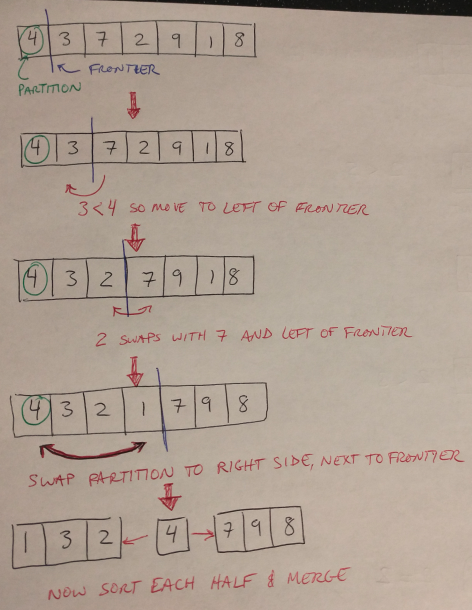 4 3 7 2 9 1 8
FRONTIER
PARTITION
4 3 7 2 9 1 8
3<4 SO MOVE TO LEFT OF FRONTIER
4 3 2 7 9 1 8
2 SWAPS WITH 7 AND LEFT OF FRONTIER
4 3 2 1 7 9 8
SWAP PARTITION TO RIGHT SIDE, NEXT TO FRONTIER
1 3 2 4 7 9 8
NOW SORT EACH HALF & MERGE